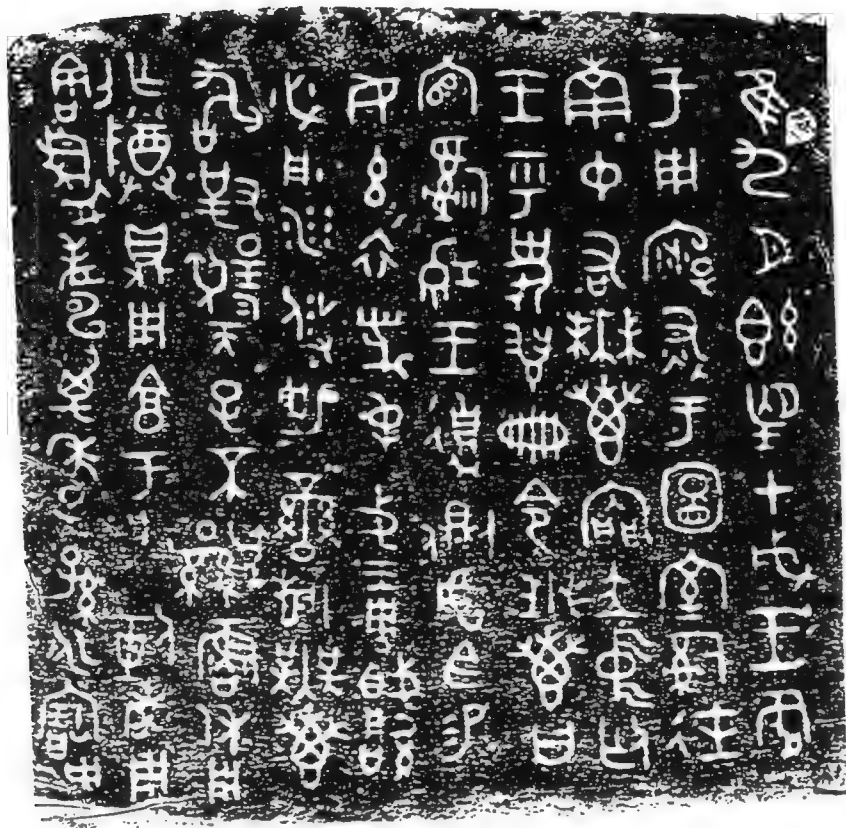 隹九月既望甲戌王各
于周廟述于圖室司徒
南中右無叀內門立中廷
王乎史翏冊令無叀曰
官司穆王遉側虎臣易
女玄衣黹屯戈琱胾厚
必彤沙攸勒鑾旂無叀
敢對揚天子不顯魯休用
乍尊鼎用享于朕剌考用
割眉壽萬年子孫永寶用